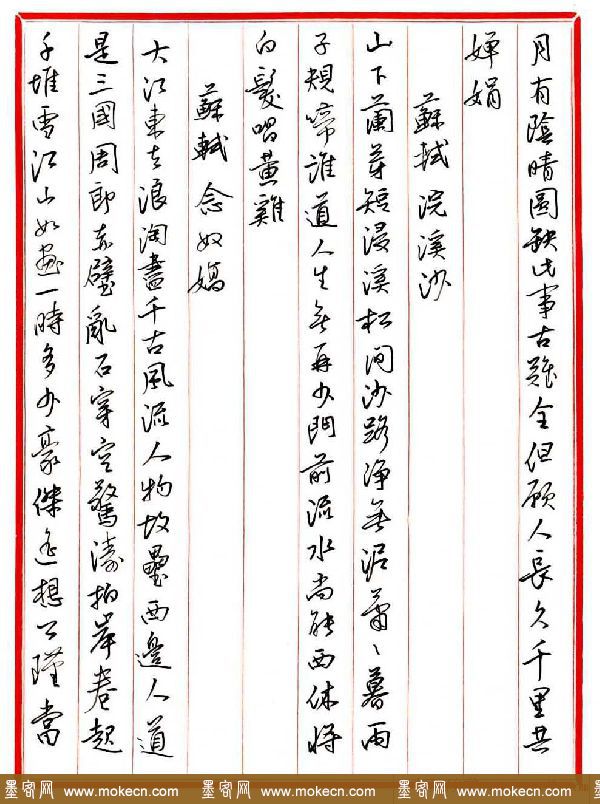 月有陰晴圆缺此事古難全但願人長久千里共
婵娟
蘇軾 浣溪沙
山下蘭芽短浸溪松间沙路净無泥蕭、暮雨
子規啼誰道人生無再少門前流水尚能西休将
白髮唱黄雞
蘇軾 念奴嬌
大江東去浪淘盡千古風流人物故壘西邊人道
是三國周郎赤壁亂石穿空驚濤拍岸卷起
千堆雪江山如畫一時多少豪傑遥想公瑾當
墨客网 www.mokecn.com 墨客网 www.mokecn.com 墨客网 www.mokecn.com 墨客网